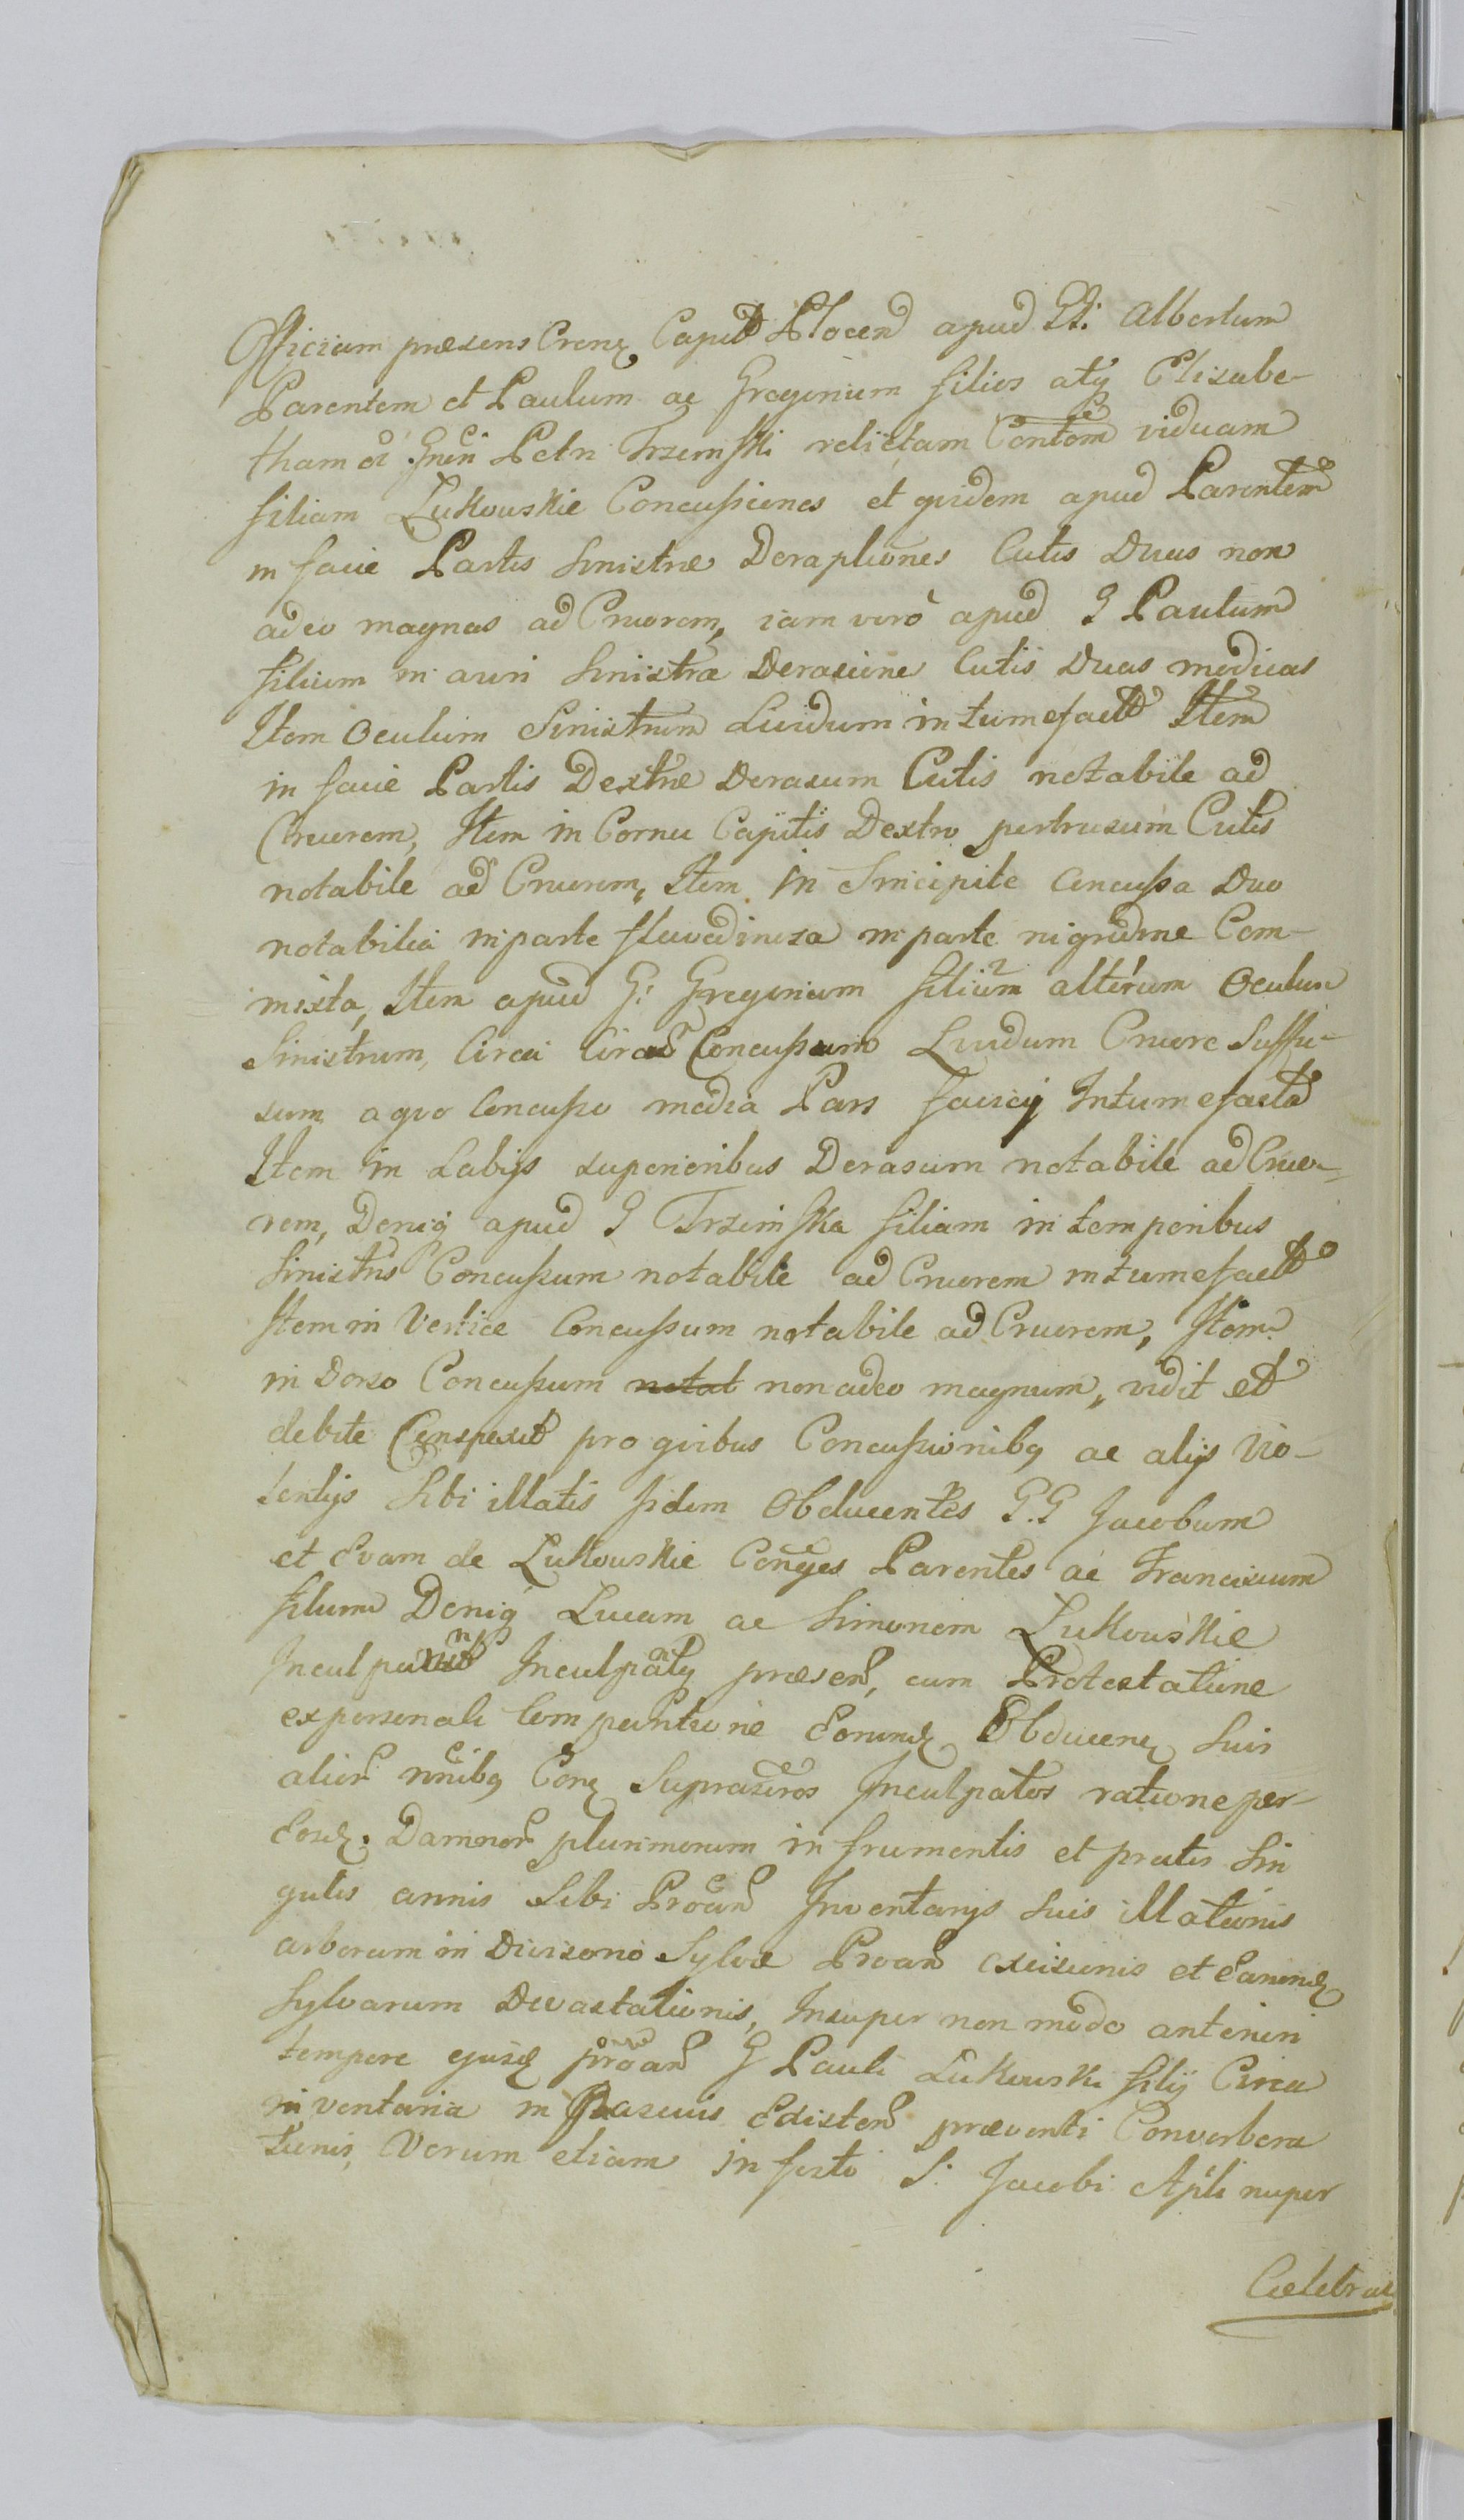 Officium præsens Crense Capitle Plocen apud GG: Albertum
Parentem et Paulum ac Gregorium filios atq Elisabe-
tham oi Gnsi Petri Trzemski relictam Contem viduam
filiam Łukowskie Concussiones et quidem apud Parentem
in facie Partis sinistræ Deraptiones Cutis Duas non
adeo magnas ad Cruorem, iam verò apud G Paulum
filium in auri sinistra Derasione Cutis Duas modicas
Item Oculum Sinistrum Lividum intumefactt Item
in facie Partis Dextræ Derasum Cutis notabile ad
Cruorem, Item in Cornu Capitis Dextro pertrusum Cutis
notabile ad Cruorem, Item in Sincipite Concussa Duo
notabilia in parte flavedinosa in parte nigredine Com-
mixta, Item apud G: Gregorium filium alterum Oculum
Sinistrum, Circa Concussum Lividum Cruore Suffu-
sum a quo Concusso media Pars faciey Intumefacta
Item in Labijs superioribus Derasum notabile ad Cruo-
rem, Deniq apud G Trzemska filiam in temporibus
sinistris Concussum notabile ad Cruorem intumefactt
Item in Vertice Concussum notabile ad Cruorem, Item
in Dorso Concussum notat non adeo magnum, vidit et
debite Conspexit pro quibus Concussionibq ac alijs vio-
lentijs sibi illatis fidem Obducentes G.G Jacobum
et Evam de Łukowskie Conges Parentes ac Franciscum
filium Deniq Lucam ac Simonem Łukowskie
Inculpantt Inculpatq præsen, cum Protestatione
ex personali Comparitione Eorund Obducen suis
alior nnibq Con Suprascros Inculpatos ratione per
Eosd. Damnor plurimorum in frumentis et pratis Sin
gulis annis Sibi Proan Inventarijs suis illationis
arborum in Divisono Sylvæ Proan excisionis et Earund
Sylvarum Devastationis, Insuper non modo anteriori
tempore ejusd proan G Pauli Łukowski filij Circa
inventaria in Pascuis Existen præventi Converbera
tionis, Verum etiam in festo S: Jacobi Apli nuper
Celebrat